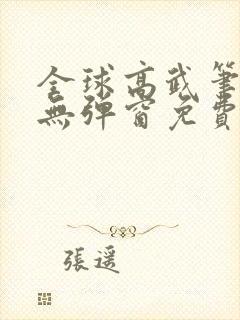 全球高武筆
無彈窗免費
張遥